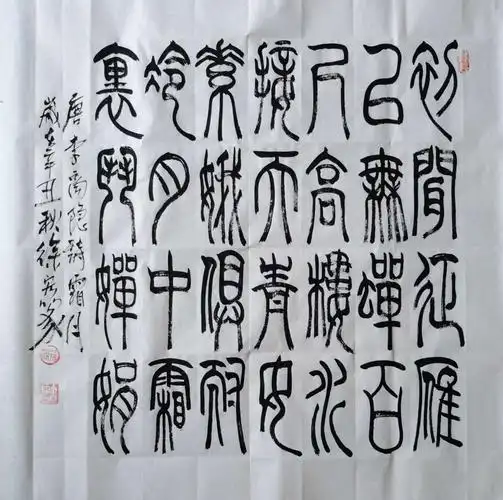 初聞征雁
已無蟬百
尺高樓水
接天青女
素娥俱耐
冷月中霜
裏鬥嬋娟
唐李商隐詩霜月
歲在辛丑秋徐